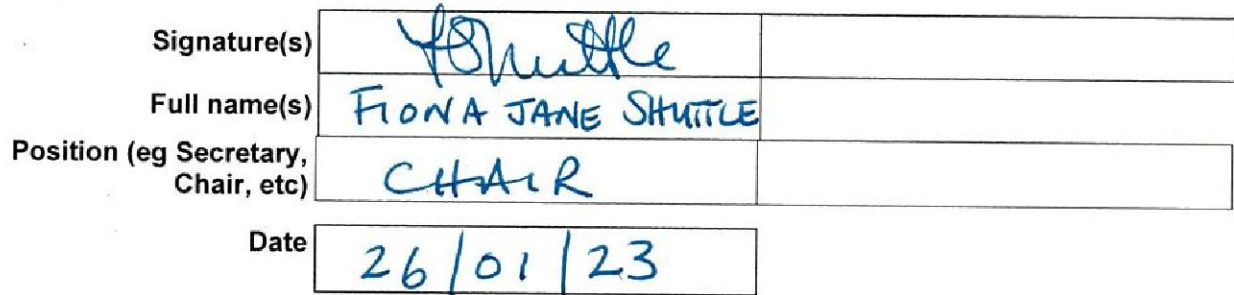 Signature(s) FShuttle
Full name(s) FIONA JANE SHUTTLE
Position (eg Secretary,
Chair, etc) CHAIR
Date 26/01/23